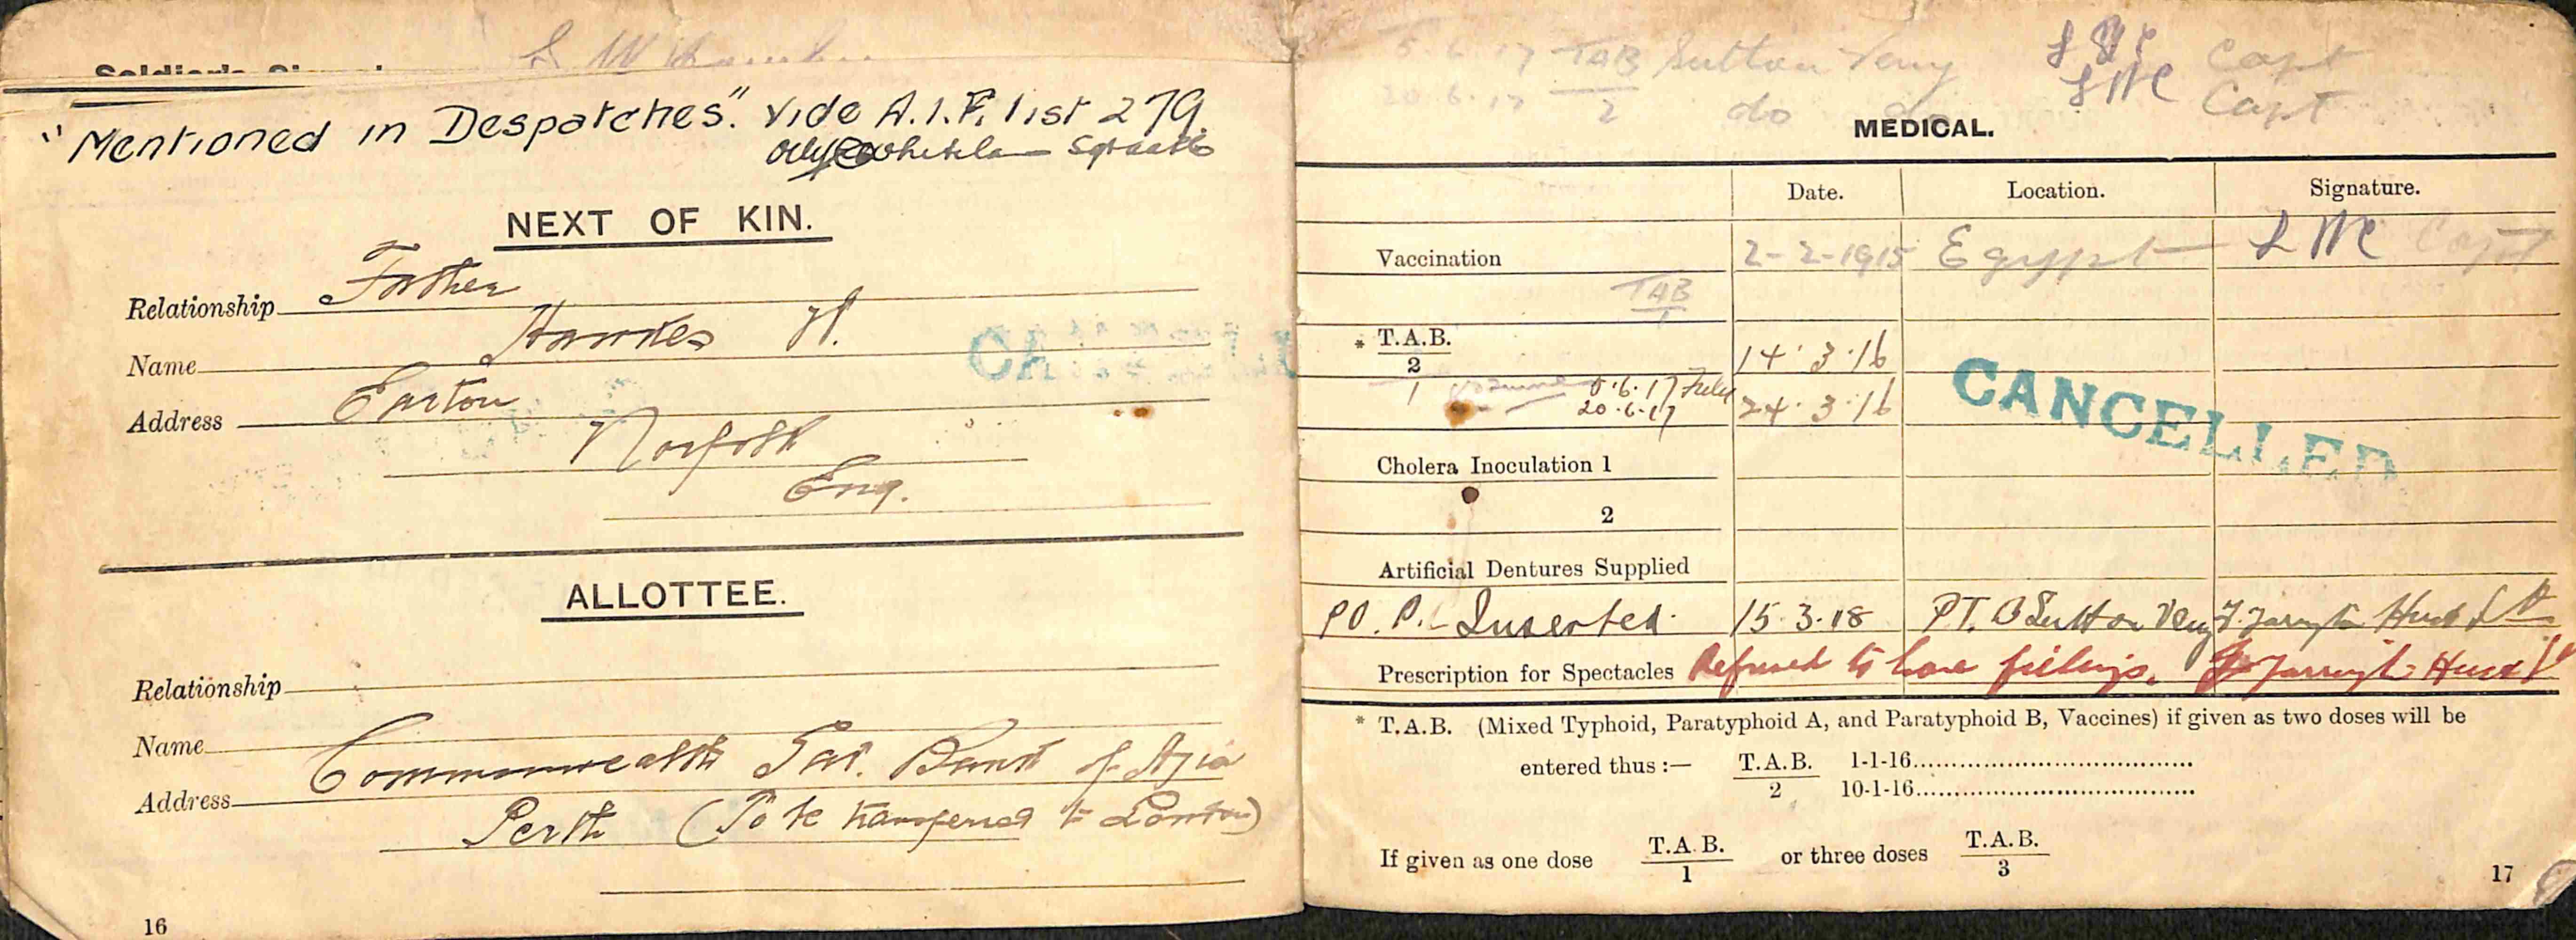 "Mentioned in Despatches". Vide A.I.F. list 279.
NEXT OF KIN.
Relationship Father
Name Hawkes H.
Address Easton
Norfolk
Eng.
ALLOTTEE.
Relationship
Name
Address Commonwealth Sav. Bank of
Perth (To be transferred to London)
16
5.6.17 TAB Sutton Veny Capt
20.6.17 2 do do Capt
MEDICAL.
Date. Location. Signature.
Vaccination 2-2-1915 Egypt Capt
TAB
1
* T.A.B.
2 14.3.16
1 5.6.17
20.6.17 24.3.16
CANCELLED
Cholera Inoculation 1
2
Artificial Dentures Supplied
Inserted. 15.3.18 Sutton Veny
Prescription for Spectacles Refused to have fillings.
* T.A.B. (Mixed Typhoid, Paratyphoid A, and Paratyphoid B, Vaccines) if given as two doses will be
entered thus :— T.A.B. 1-1-16
2 10-1-16
If given as one dose T.A.B. or three doses T.A.B.
1 3
17